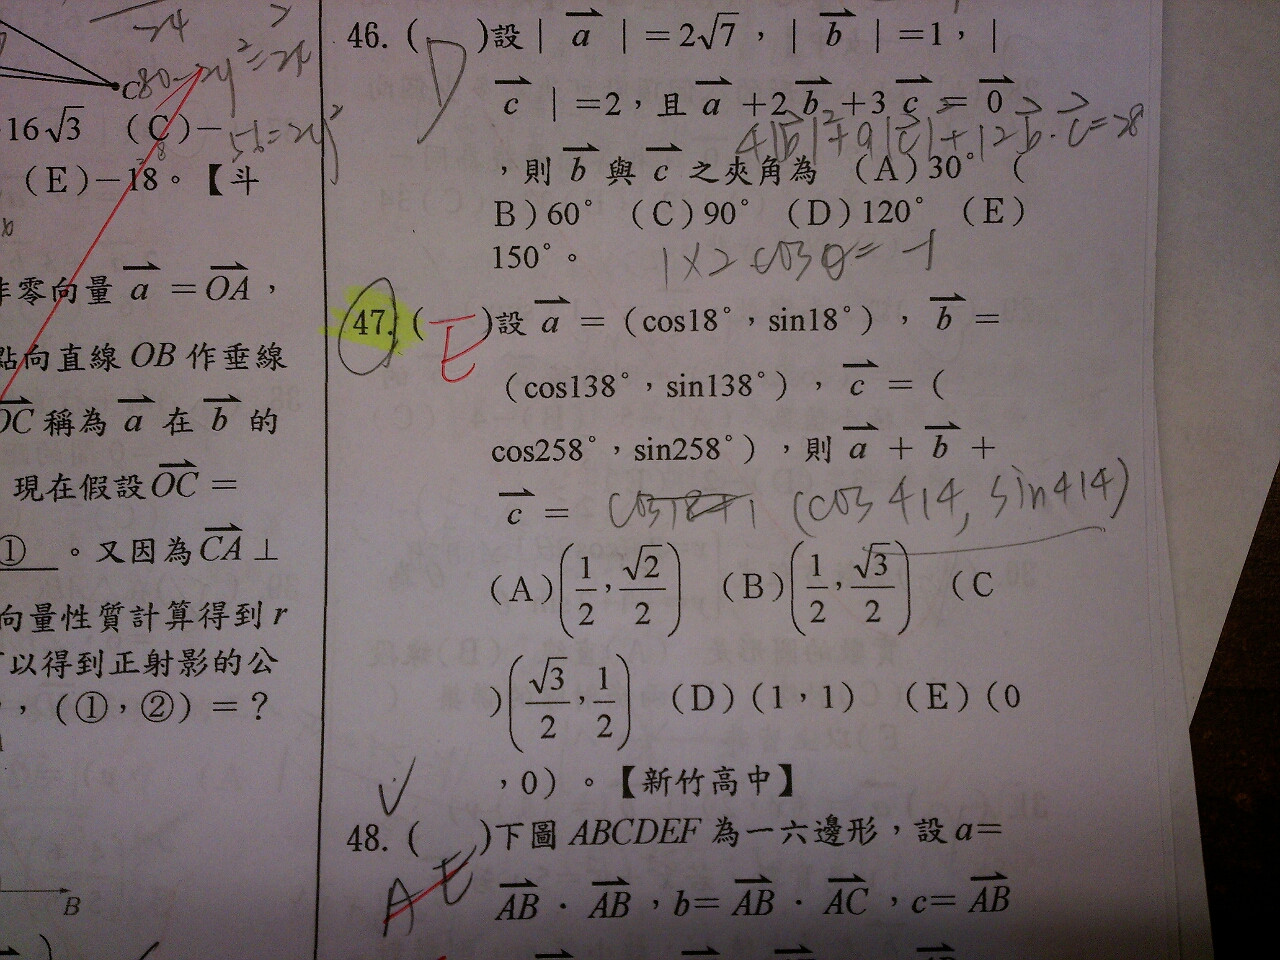 C 80-2y²=2x
16√3 (C)-
56=2y²
(E)-18。【斗
非零向量 a = OA，
點向直線 OB 作垂線
OC 稱為 a 在 b 的
現在假設 OC =
① 。又因為 CA ⊥
向量性質計算得到 r
可以得到正射影的公
，(①，②) = ?
B
46. ( D )設 | a | = 2√7，| b | = 1，|
c | = 2，且 a + 2 b + 3 c = 0
4|b|²+9|c|+12b·c=28
，則 b 與 c 之夾角為 (A)30° (
B)60° (C)90° (D)120° (E)
150°。 1×2 cosθ=-1
47. ( E )設 a = (cos18°，sin18°)，b =
(cos138°，sin138°)，c = (
cos258°，sin258°)，則 a + b +
c = (cos414, sin414)
(A)(1/2, √2/2) (B)(1/2, √3/2) (C
)(√3/2, 1/2) (D)(1,1) (E)(0
,0)。【新竹高中】
48. ( A E )下圖 ABCDEF 為一六邊形，設 a=
AB · AB，b= AB · AC，c= AB